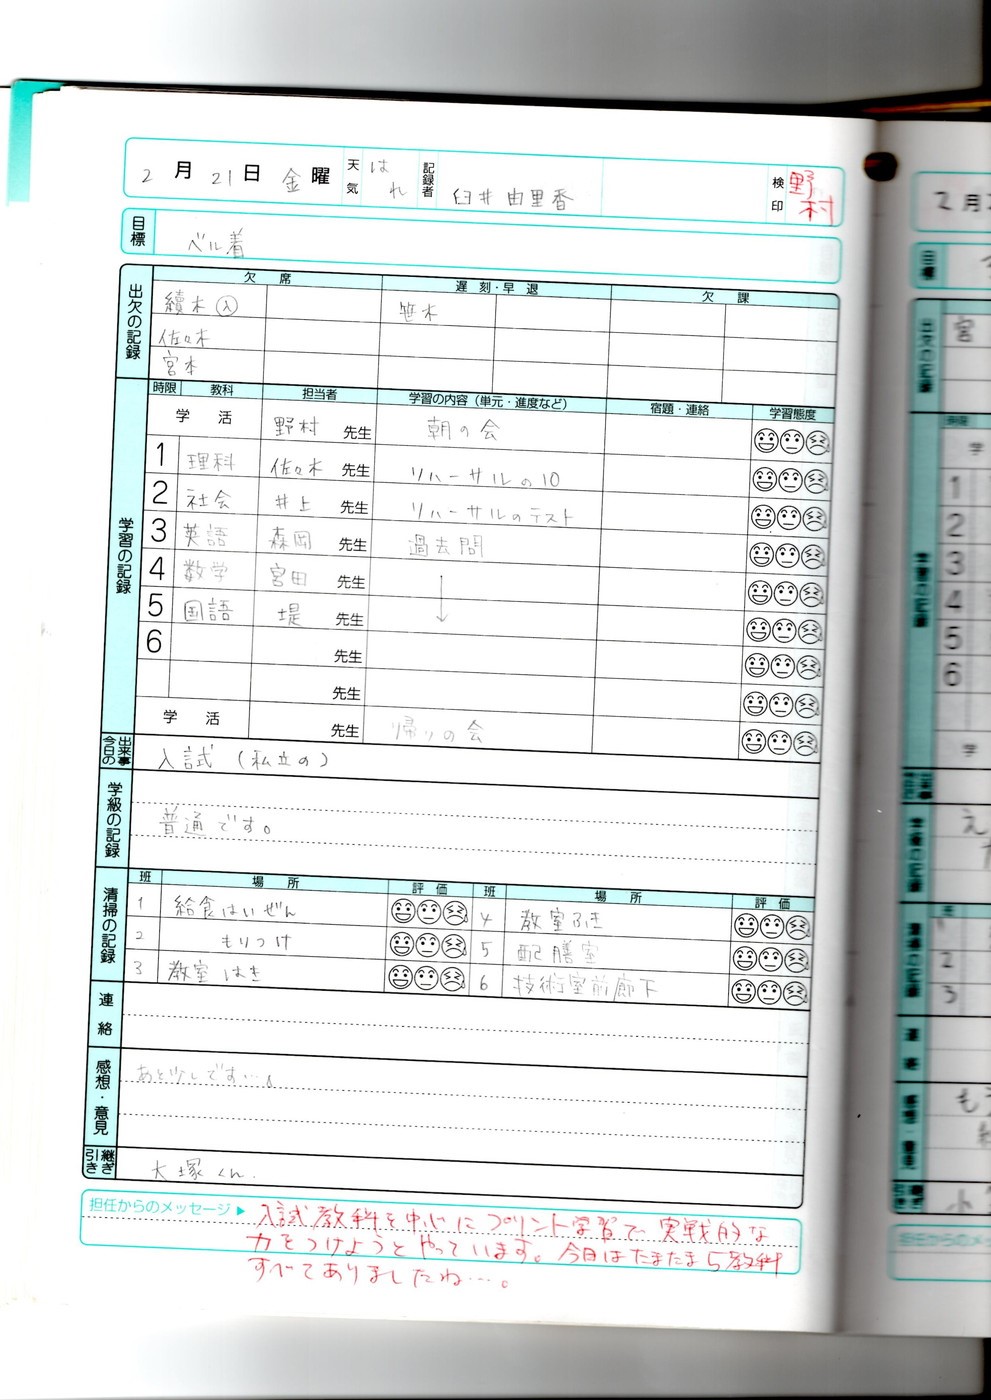 2月21日 金曜 天気 はれ 記録者 臼井由里香 検印 野村
目標 ベル着
出欠の記録
欠席 遅刻・早退 欠課
續木 入 笹木
佐々木
宮本
学習の記録
時限 教科 担当者 学習の内容（単元・進度など） 宿題・連絡 学習態度
学活 野村 先生 朝の会
1 理科 佐々木 先生 リハーサルの10
2 社会 井上 先生 リハーサルのテスト
3 英語 森岡 先生 過去問
4 数学 宮田 先生 ↓
5 国語 堤 先生
6 先生
先生
学活 先生 帰りの会
今日の出来事 入試（私立の）
学級の記録 普通です。
清掃の記録
班 場所 評価 班 場所 評価
1 給食はいぜん 4 教室ふき
2 もりつけ 5 配膳室
3 教室はき 6 技術室前廊下
連絡
感想・意見 あと少しです…。
引き継ぎ 大塚くん.
担任からのメッセージ▶ 入試教科を中心にプリント学習で実戦的な
力をつけようとやっています。今日はたまたま5教科
すべてありましたね…。
2月
目標
出欠の記録
宮
時限
学
1
2
3
4
5
6
学
学級の記録
2
3
連絡
も
引き継ぎ
小
担任からのメッ